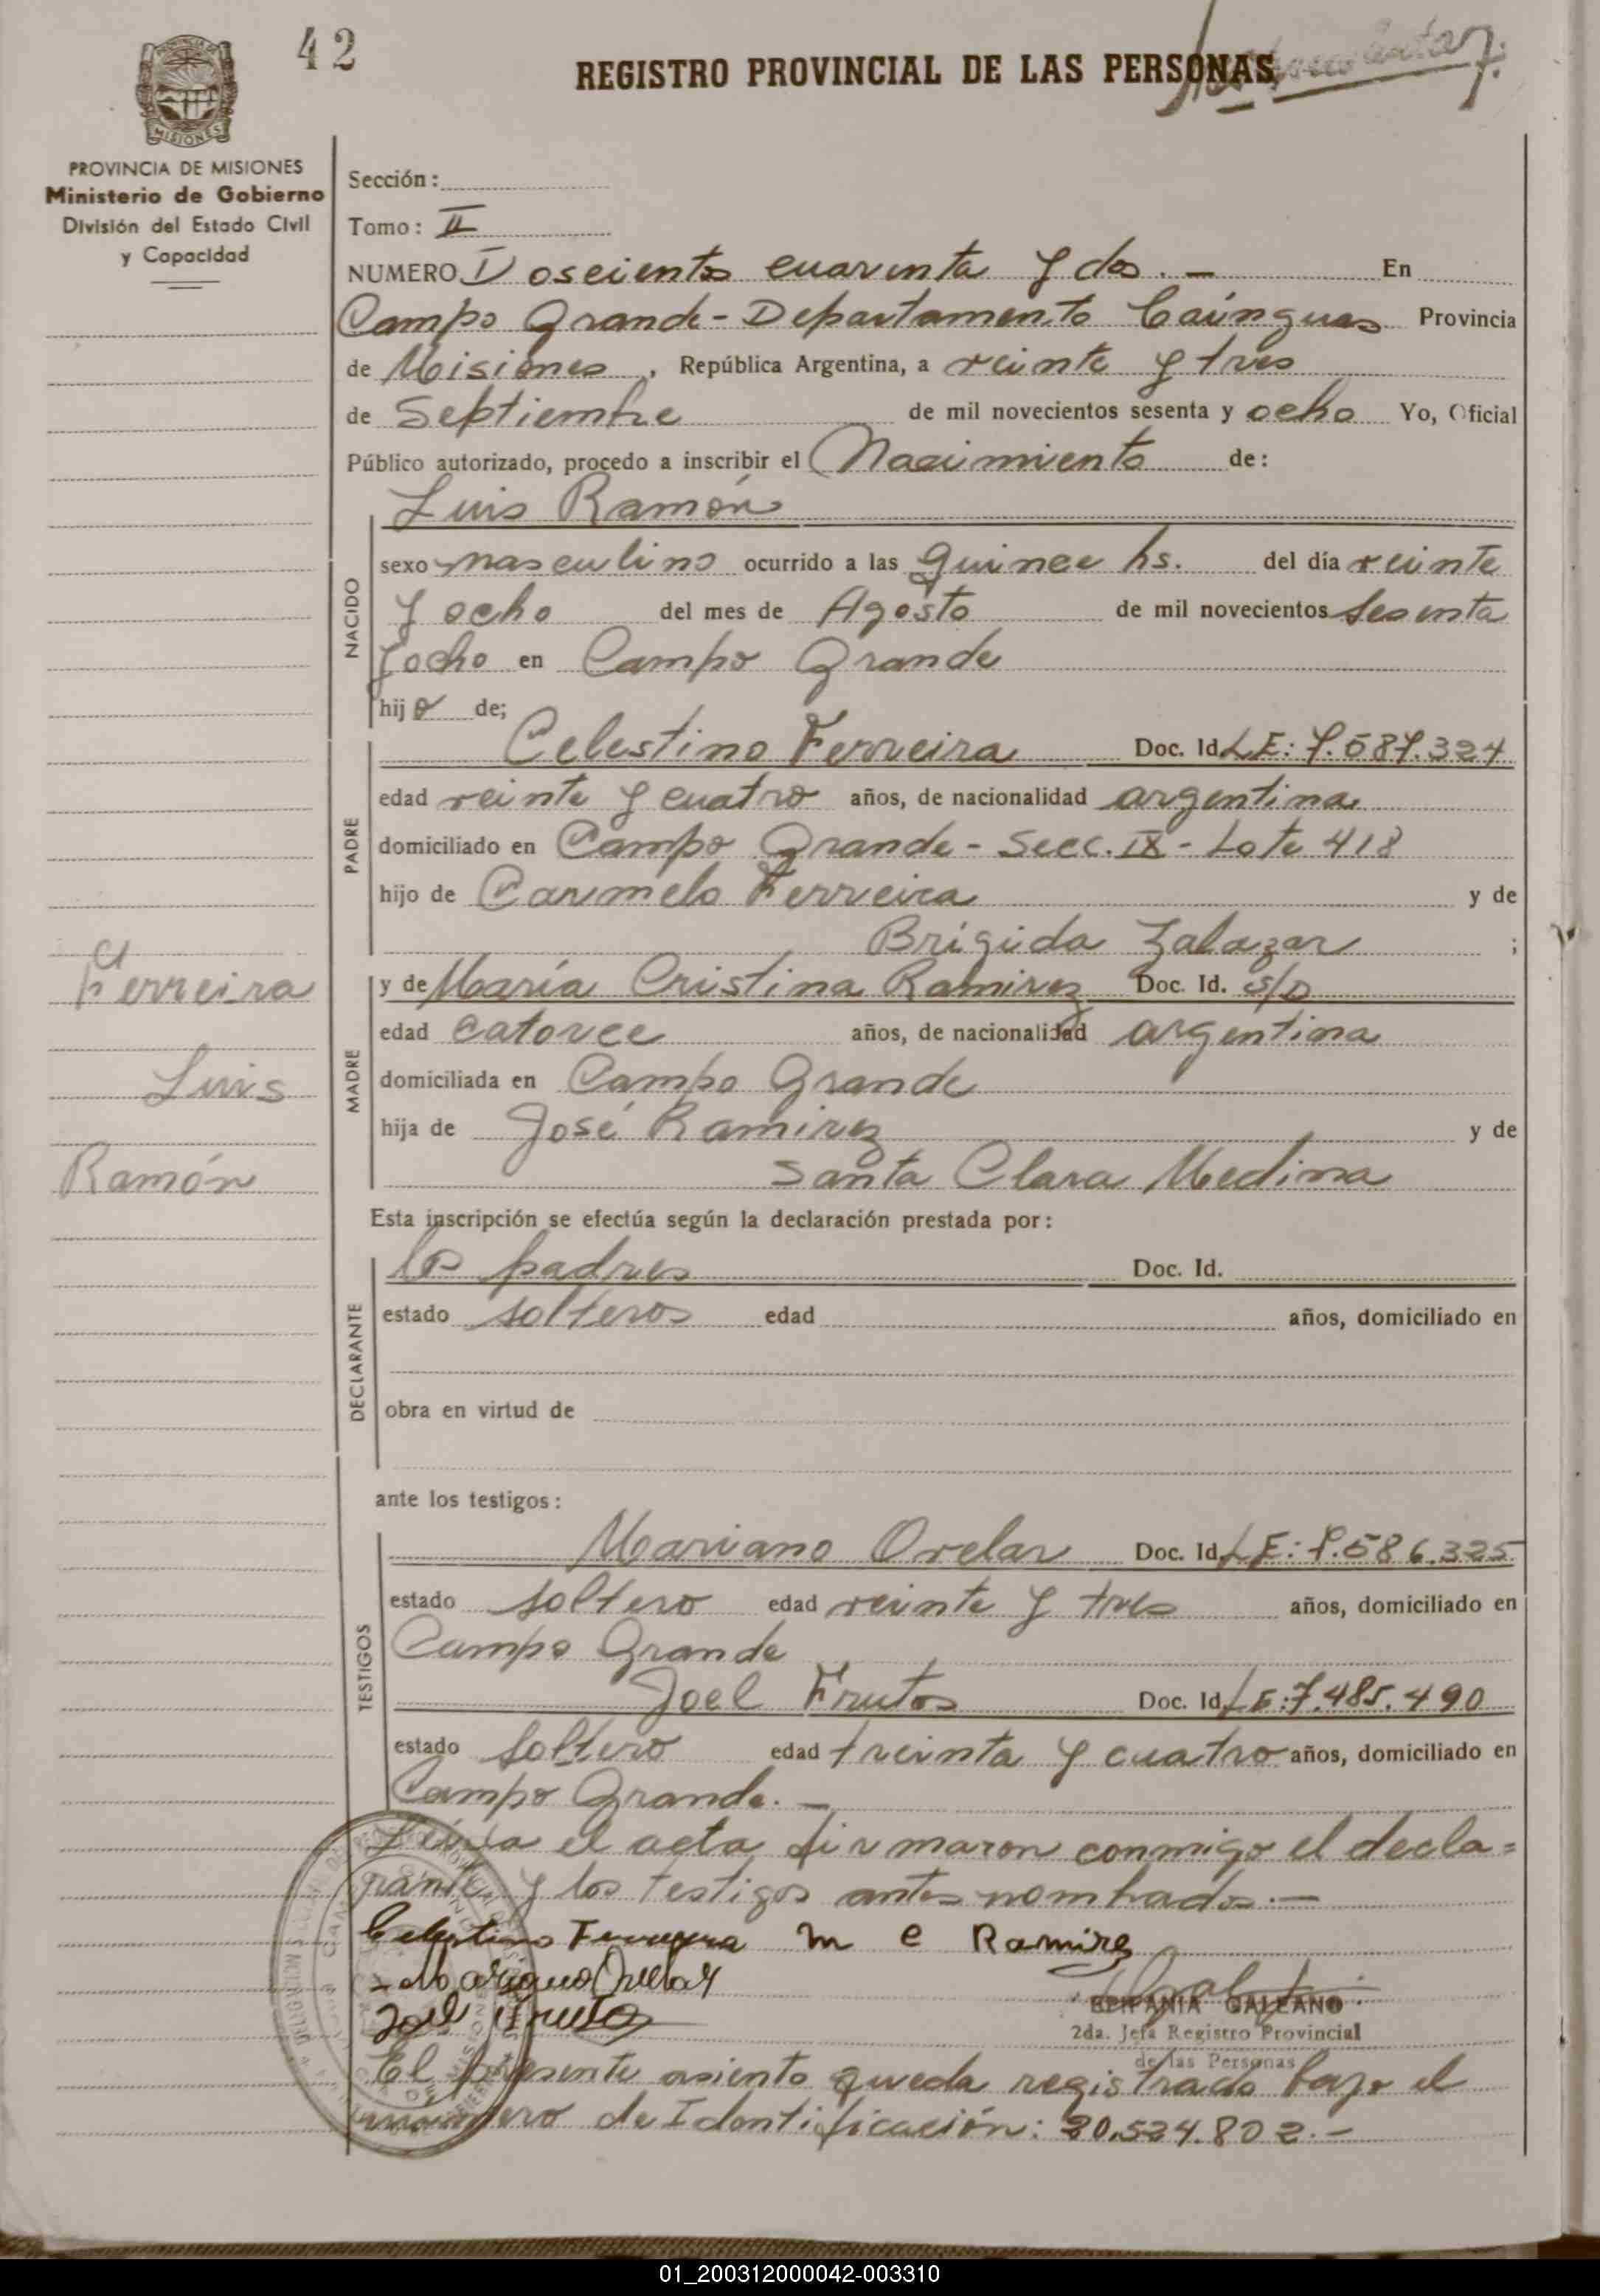 42
REGISTRO PROVINCIAL DE LAS PERSONAS
PROVINCIA DE MISIONES
Ministerio de Gobierno
División del Estado Civil
y Capacidad
Sección:
Tomo: II
NUMERO Doscientos cuarenta y dos. — En
Campo Grande - Departamento Caínguas Provincia
de Misiones, República Argentina, a veinte y tres
de Septiembre de mil novecientos sesenta y ocho Yo, Oficial
Público autorizado, procedo a inscribir el Nacimiento de:
Luis Ramón
NACIDO
sexo masculino ocurrido a las quince hs. del día veinte
y ocho del mes de Agosto de mil novecientos sesenta
y ocho en Campo Grande
hijo de;
PADRE
Celestino Ferreira Doc. Id. LE: 7.587.324
edad veinte y cuatro años, de nacionalidad argentina
domiciliado en Campo Grande - Secc. IX - Lote 418
hijo de Carmelo Ferreira y de
Brígida Zalazar ;
MADRE
y de María Cristina Ramirez Doc. Id. S/D
edad catorce años, de nacionalidad argentina
domiciliada en Campo Grande
hija de José Ramirez y de
Santa Clara Medina
Ferreira
Luis
Ramón
Esta inscripción se efectúa según la declaración prestada por:
DECLARANTE
los padres Doc. Id.
estado solteros edad años, domiciliado en
obra en virtud de
ante los testigos:
TESTIGOS
Mariano Orelar Doc. Id. LE: 7.586.325
estado soltero edad veinte y tres años, domiciliado en
Campo Grande
Joel Frutos Doc. Id. LE: 7.485.490
estado soltero edad treinta y cuatro años, domiciliado en
Campo Grande. —
Leída el acta firmaron conmigo el decla=
rante y los testigos antes nombrados.—
Celestino Ferreyra m c Ramirez
Mariano Orellar
Joel Frutos
EPIFANIA GALEANO
2da. Jefa Registro Provincial
de las Personas
El presente asiento queda registrado bajo el
numero de Identificación: 20.524.802.-
01_200312000042-003310